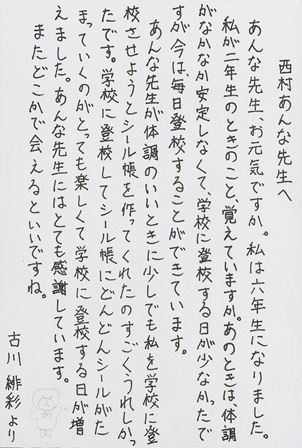 西村あんな先生へ
あんな先生、お元気ですか。私は六年生になりました。
私が二年生のときのこと覚えていますか。あのときは、体調
がなかなか安定しなくて、学校に登校する日が少なかったで
すが今は、毎日登校することができています。
あんな先生が体調のいいときに少しでも私を学校に登
校させようとシール帳を作ってくれたのすごくうれしかっ
たです。学校に登校してシール帳にどんどんシールがた
まっていくのがとっても楽しくて学校に登校する日が増
えました。あんな先生にはとても感謝しています。
またどこかで会えるといいですね。
古川緋彩より